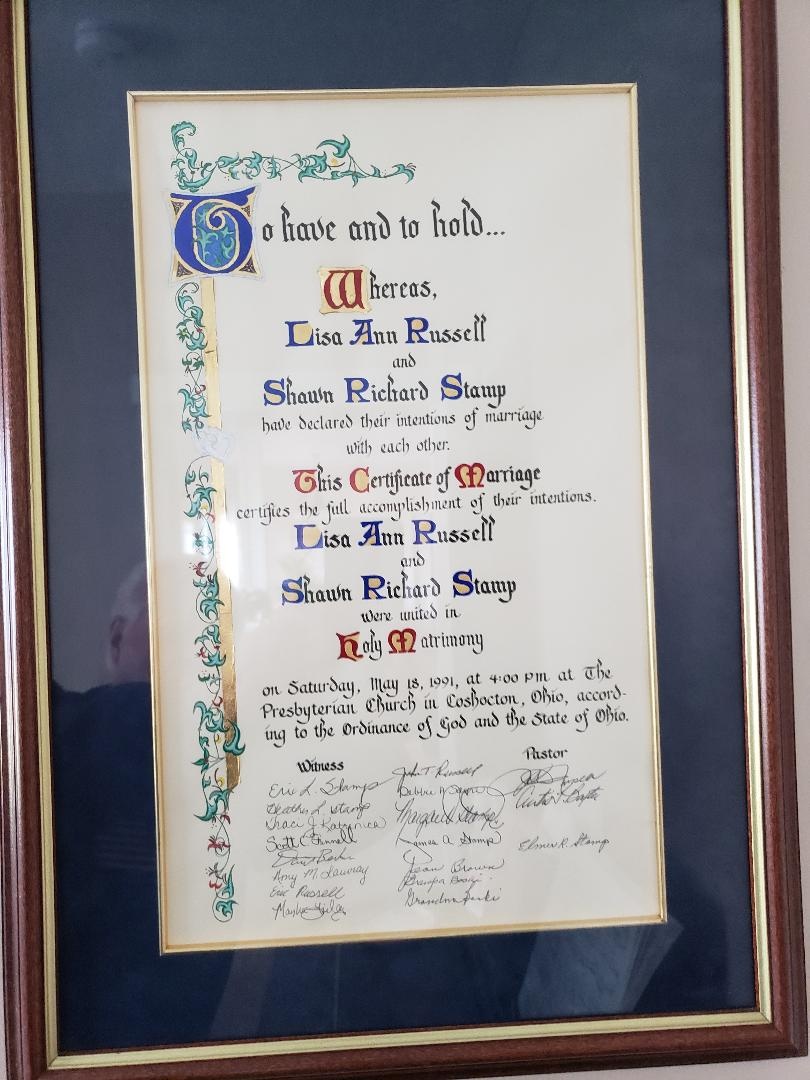 To have and to hold...
Whereas,
Lisa Ann Russell
and
Shawn Richard Stamp
have declared their intentions of marriage
with each other.
This Certificate of Marriage
certifies the full accomplishment of their intentions.
Lisa Ann Russell
and
Shawn Richard Stamp
were united in
Holy Matrimony
on Saturday, May 18, 1991, at 4:00 pm at The
Presbyterian Church in Coshocton, Ohio, accord-
ing to the Ordinance of God and the State of Ohio.
Witness
Eric L. Stamp
Heather L Stamp
Traci J.
Scott
Amy M.
Eric Russell
John T Russell
Debbie
Margaret Stamp
James A Stamp
Jean Brown
Grandpa
Grandma
Pastor
Elmer R. Stamp